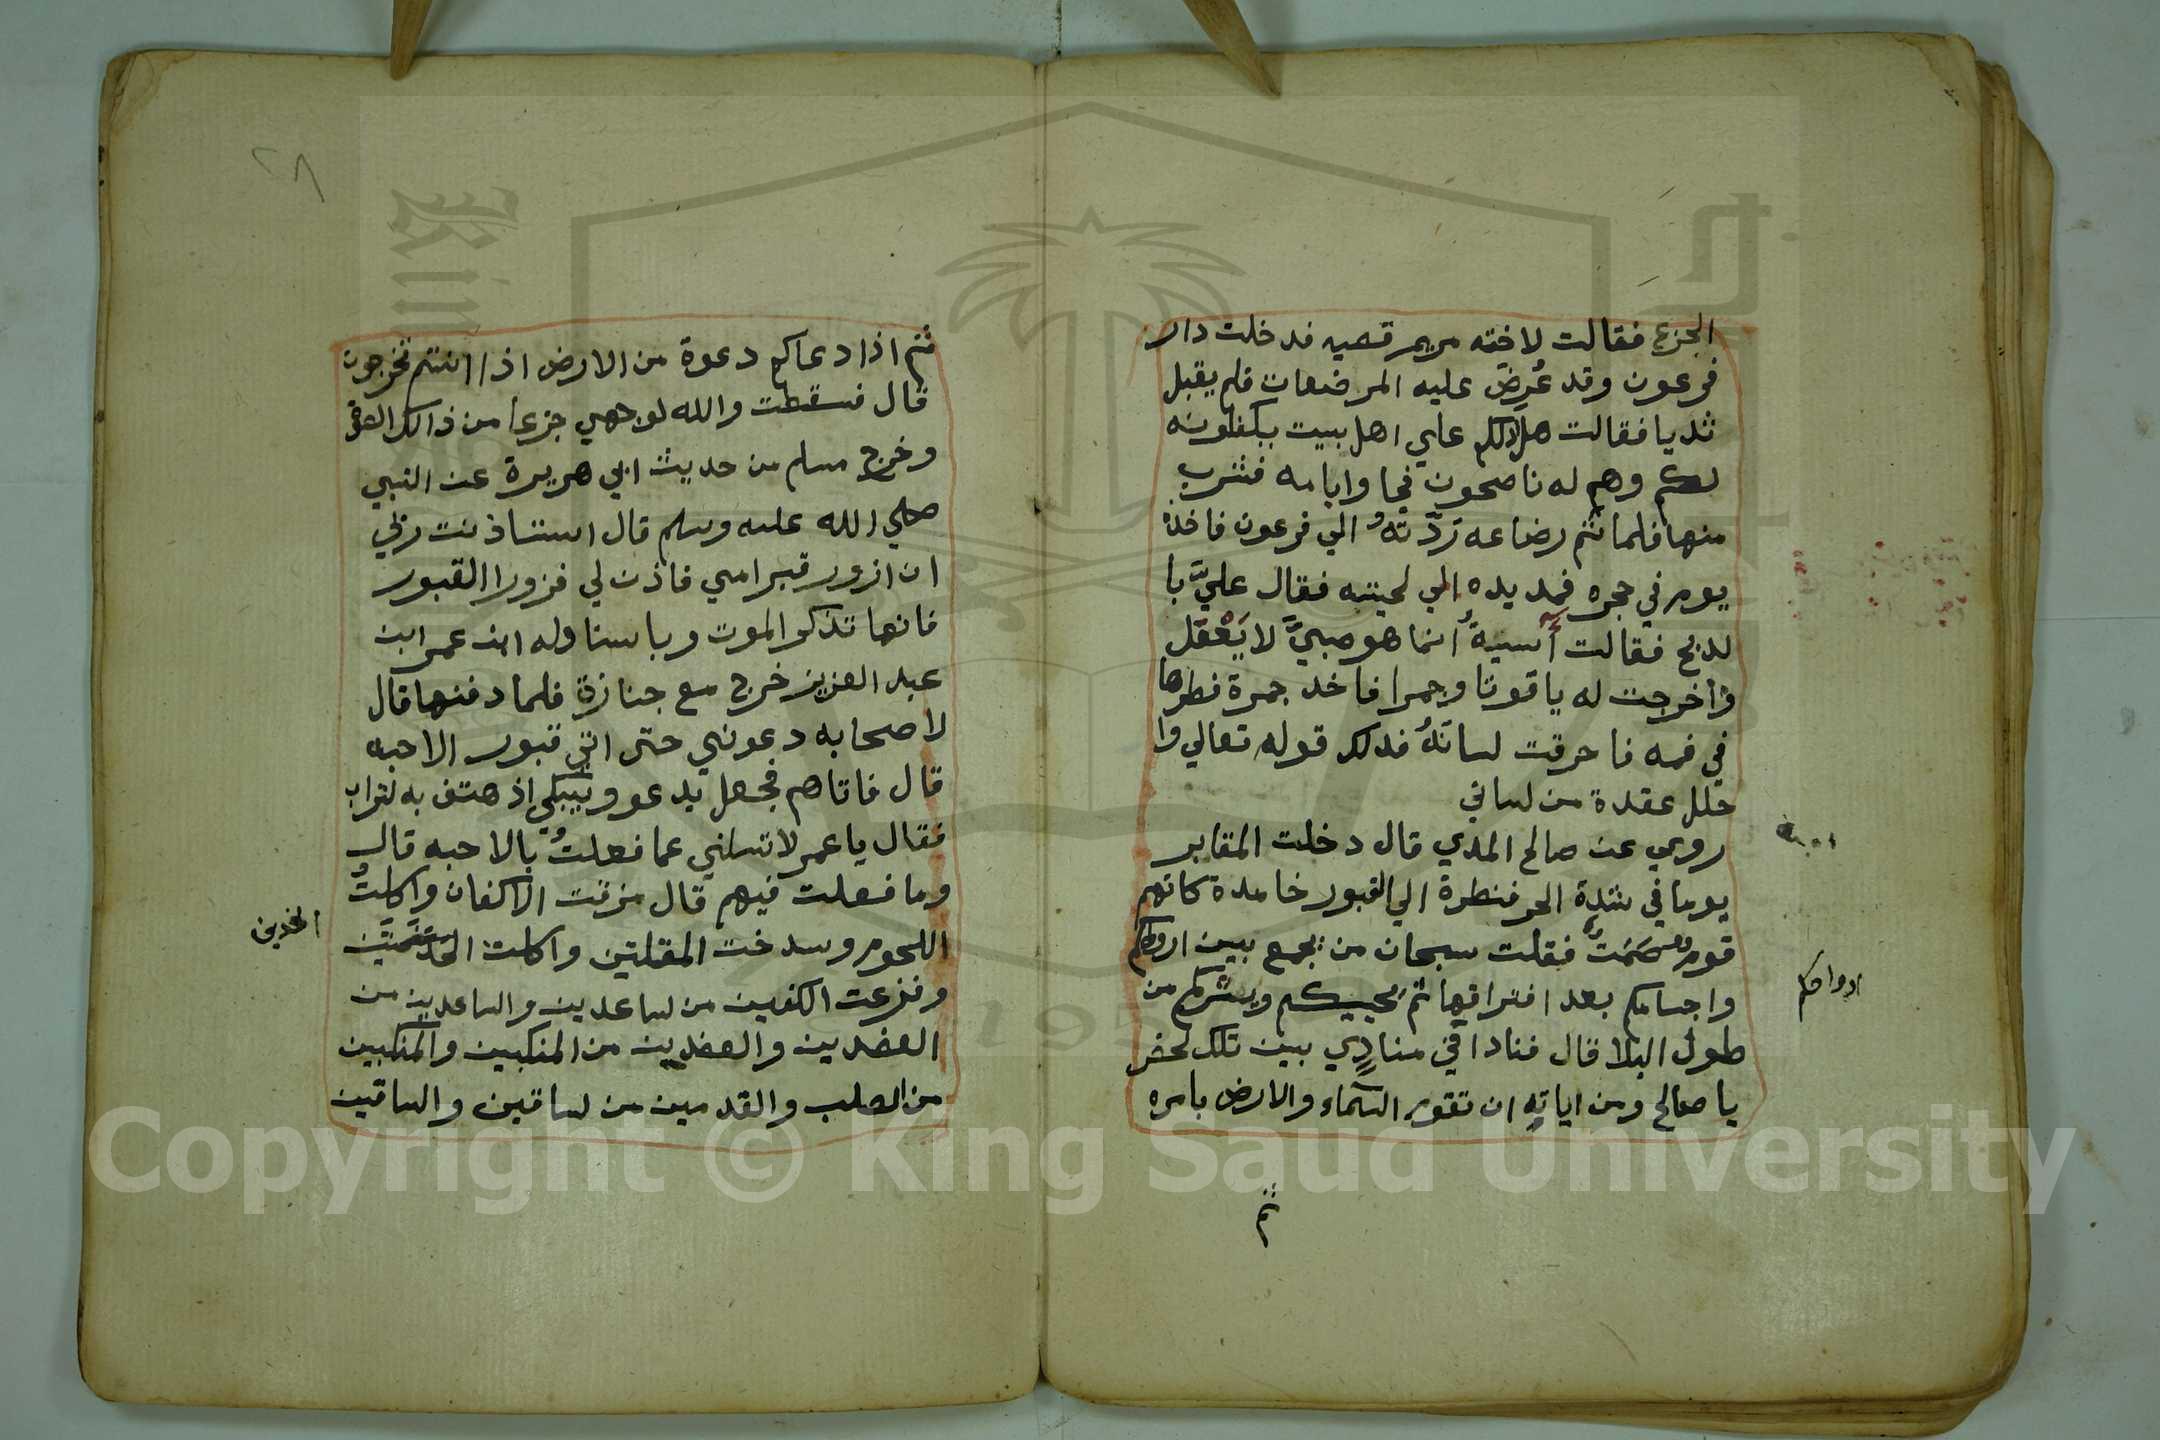 الجزع فقالت لاخته مريم قصيه فدخلت دار
فرعون وقد عُرِضَ عليه المرضعات فلم يقبل
ثديا فقالت هلادلكم علي اهل بيت يكفلونه
لكم وهم له ناصحون فجاوابامه فشرب
منها فلما تم رضاعه رَدَّتهُ الي فرعون فاخذه
يوم في حجره فمد يده الي لحيته فقال عليَّ با
لدبح فقالت آسيةُ انما هو صبيَّ لا يَعْقل
وأخرجت له ياقوتا وجمرا فاخد جمرة فطرحها
في فمه فاحرقت لسانهُ فدلك قوله تعالي وا
حلل عقدة من لساني
روي عن صالح المدي قال دخلت المقابر
يوما في شدة الحر فنظرة الي القبور خامدة كانهم
قوم صَمَتُ فقلت سبحان من يجمع بين ارواحكم
واجسامكم بعد افتراقها ثم يحييكم وينشركم من
طول البلا قال فنادا في منادٍي بين تلك لحفر
يا صالح ومن اياته ان تقوم السماء والارض بامره
ارواحكم
ثم
٢٨
ثم اذا دعاكم دعوة من الارض اذا انتم تخرجون
قال فسقطت والله لوجهي جزعا من ذالك الصوت
وخرج مسلم من حديث ابي هريرة عن النبي
صلي الله عليه وسلم قال استاذنت ربي
ان ازور قبر امي فاذن لي فزورا القبور
فانها تذكر الموت وباسناوله ان عمر ابن
عبد العزيز خرج مع جنازة فلما دفنها قال
لاصحابه دعوني حتى اتي قبور الاحبه
قال فاتاهم فجعل يدعو ويبكي إذ هتف به لتراب
فقال يا عمر لا تسلني عما فعلتُ بالاحبه قال
وما فعلت فيهم قال مزقت الاكفان واكلتُ
اللحوم وسدخت المقلتين واكلت الحدقتين
ونزعت الكفين من لساعدين والساعدين من
العضدين والعضدين من المنكبين والمنكبين
من الصلب والقدمين من لساقين والساقين